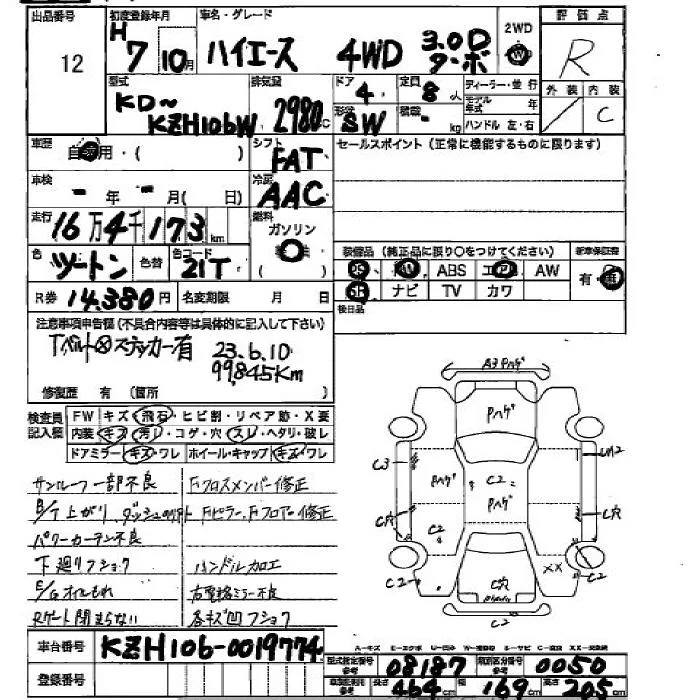 出品番号 12
初度登録年月 H7年10月
車名・グレード ハイエース 4WD 3.0D ターボ
2WD
評価点 R
外装 内装 C
型式 KD~ KZH106W
排気量 2980 C
ドア 4
定員 8人
ディーラー・並行
形状 SW
積載 - kg
モデル年式 年
ハンドル 左・右
車歴 自家用・( )
シフト FAT
セールスポイント(正常に機能するものに限ります)
車検 - 年 - 月( 日)
冷房 AAC
走行 16万4千173km
燃料 ガソリン
( )
色 ツートン 色替
色コード 21T
装備品(純正品に限り○をつけてください)
新車保証書
PS PW ABS エアB AW
有・無
SR ナビ TV カワ
R券 14,380円
名変期限 月 日
後日品
注意事項申告欄(不具合内容等は具体的に記入して下さい)
Tベルト⊗ステッカー有 23.6.10
99,845Km
修復歴 有 (箇所 )
検査員記入欄
FW キズ・飛石・ヒビ割・リペア跡・X要
内装 キズ・汚レ・コゲ・穴・スレ・ヘタリ・破レ
ドアミラー キズ・ワレ ホイール・キャップ キズ・ワレ
サンルーフ一部不良 Fクロスメンバー修正
Fピラー、Fフロアー修正
パワーカーテン不良
下廻りフショク ハンドル加工
E/Gオイルもれ 右電格ミラー不良
Rゲート閉まらない 各キズ凹フショク
A3 Pハゲ
Pハゲ
C3
Pハゲ
C2
Pハゲ
C穴
C2
C穴
XX
C2
C2
C穴
車台番号 KZH106-0019774
登録番号
型式指定番号 参考 08187
類別区分番号 参考 0050
長さ 464cm 幅 169cm 高さ 205cm